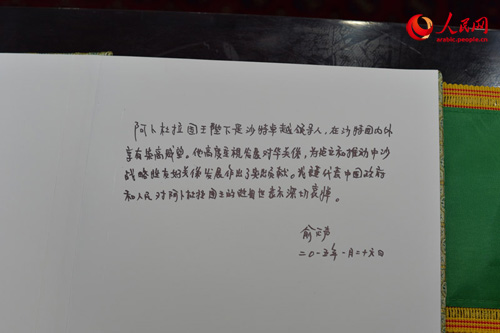 人民网
arabic.people.cn
阿卜杜拉国王陛下是沙特卓越领导人，在沙特国内外
享有崇高威望。他高度重视发展对华关系，为建立和推动中沙
战略性友好关系发展作出了突出贡献。我谨代表中国政府
和人民对阿卜杜拉国王的逝世表示深切哀悼。
俞正声
二〇一五年一月二十六日